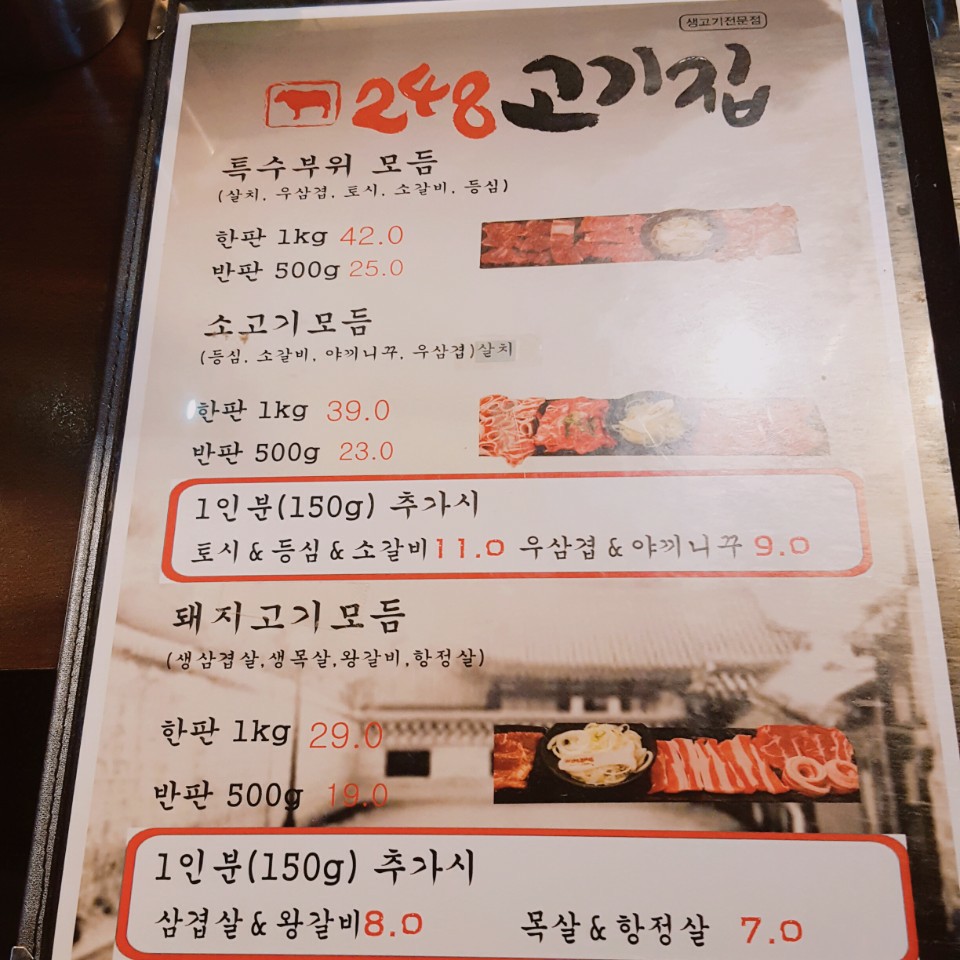 생고기전문점
248 고기집
특수부위 모듬
(살치, 우삼겹, 토시, 소갈비, 등심)
한판 1kg 42.0
반판 500g 25.0
소고기모듬
(등심, 소갈비, 야끼니꾸, 우삼겹)살치
한판 1kg 39.0
반판 500g 23.0
1인분(150g) 추가시
토시&등심&소갈비11.0 우삼겹&야끼니꾸 9.0
돼지고기모듬
(생삼겹살,생목살,왕갈비,항정살)
한판 1kg 29.0
반판 500g 19.0
1인분(150g) 추가시
삼겹살&왕갈비8.0 목살&항정살 7.0